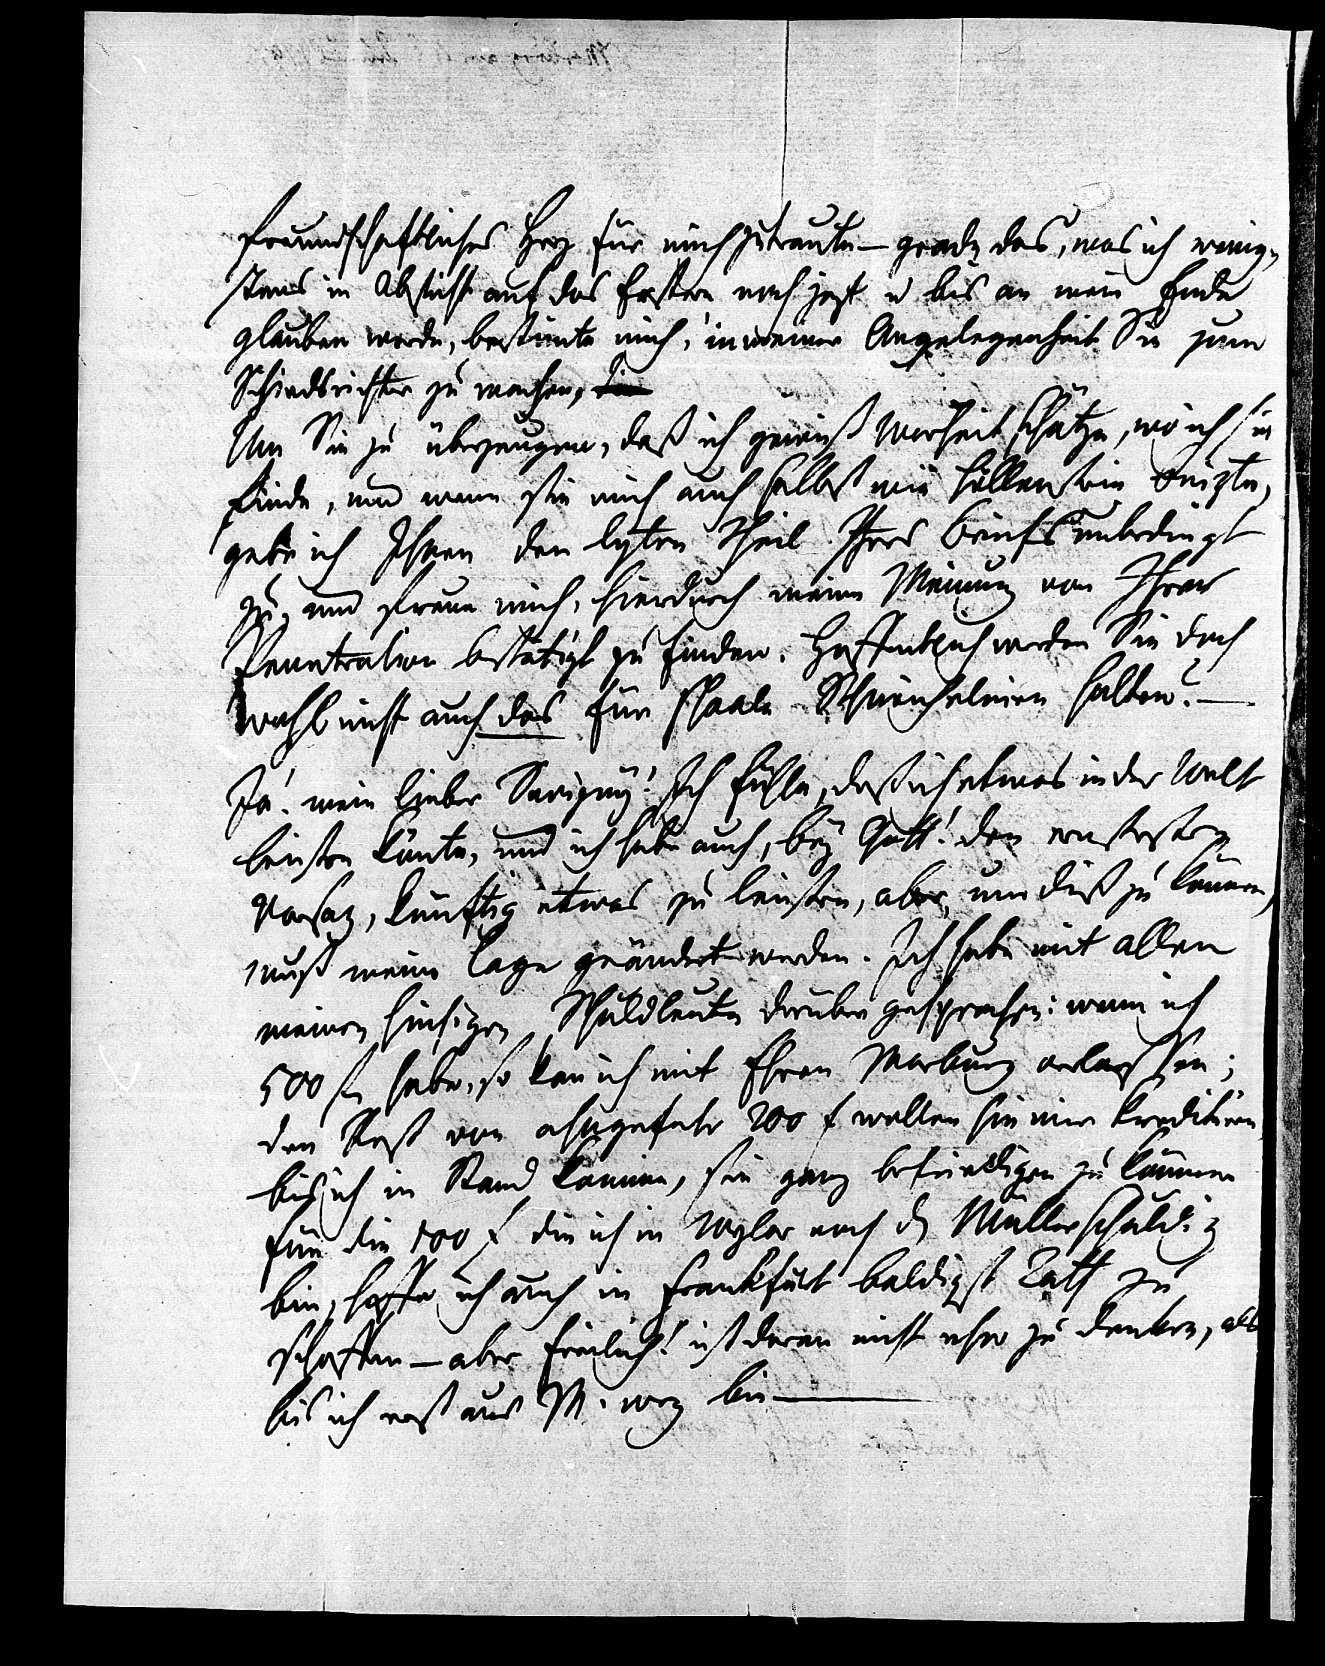 freundschaftliches Herz für mich zutraute — grade das, was ich wenig-
stens in Absicht auf das Erstere noch jezt u bis an mein Ende
glauben werde, bestimte mich, in meiner Angelegenheit Sie zum
Schiedsrichter zu machen,
Um Sie zu überzeugen, daß ich gewiß Warheit schätze, wo ich sie
finde, und wenn sie mich auch selbst wie Höllenstein beizte,
gebe ich Ihnen den lezten Theil Ihres Briefs unbedingt
zu, und freue mich, hierdurch meine Meinung von Ihrer
Penetration bestätigt zu finden. Hoffentlich werden Sie doch
wohl nicht auch das für schaale Schmeicheleien halten? —
Ja! mein lieber Savigny! Ich fühle, daß ich etwas in der Welt
leisten könte, und ich habe auch, bey Gott! den ernstesten
Vorsaz, künftig etwas zu leisten, aber, um diß zu können,
muß meine Lage geändert werden. Ich habe mit allen
meinen hiesigen Schuldleuten darüber gesprochen: wenn ich
500 f habe, so kan ich mit Ehren Marburg verlassen;
den Rest von ohngefehr 200 f wollen sie mir kreditiren
bis ich in Stand komme, sie ganz befriedigen zu können
für die 100 f die ich in Wezlar noch d Müller schuldig
bin, hoffe ich auch in Frankfurt baldigst Rath zu
schaffen — aber freilich! ist daran nicht eher zu denken, als
bis ich erst aus M. weg bin —